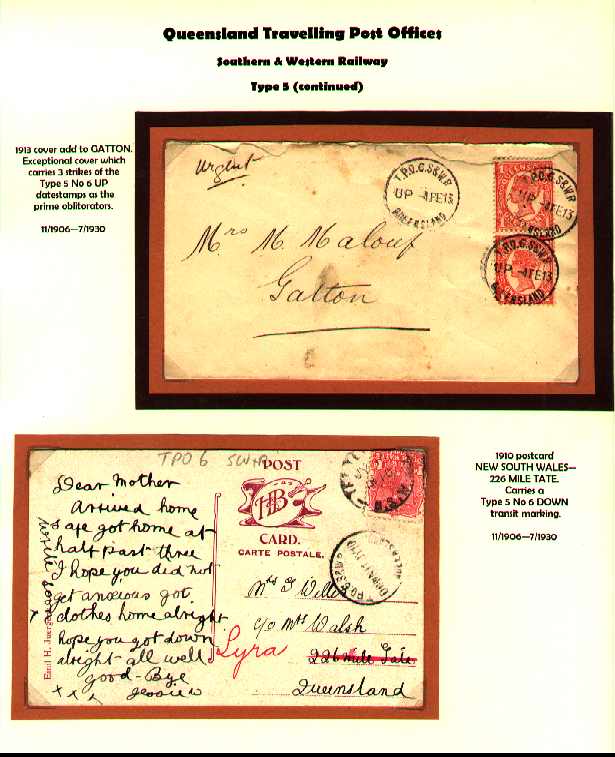 Queensland Travelling Post Offices
Southern & Western Railway
Type 5 (continued)
1913 cover add to GATTON.
Exceptional cover which
carries 3 strikes of the
Type 5 No 6 UP
datestamps as the
prime obliterators.
11/1906—7/1930
Urgent
T.P.O.6.S&W.R.
UP -4FE13
QUEENSLAND
T.P.O.6.S&W.R.
UP -4FE13
QUEENSLAND
T.P.O.6.S&W.R.
UP -4FE13
QUEENSLAND
Mrs M. Malouf
Gatton
1910 postcard
NEW SOUTH WALES—
226 MILE TATE.
Carries a
Type 5 No 6 DOWN
transit marking.
11/1906—7/1930
TPO 6 SWR
POST
HB
CARD.
CARTE POSTALE.
Dear Mother
Arrived home
safe got home at
half past three
I hope you did not
get anxious got
clothes home alright
hope you got down
alright all well
Good-Bye
x x x Jessie w
write soon
Emil H. Juerg
Mrs G Wille
c/o Mrs Walsh
Lyra
226 Mile Gate
Queensland